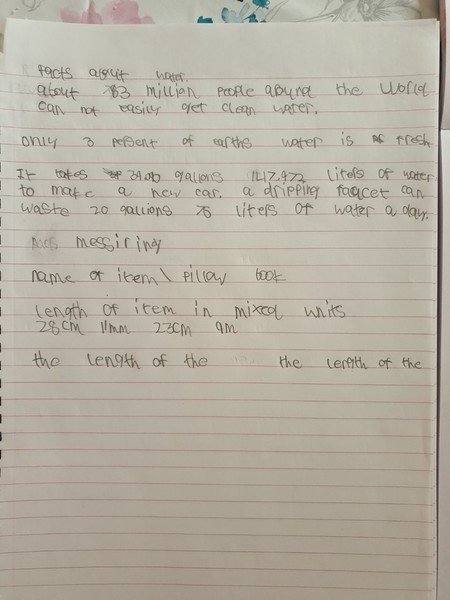 facts about water.
about 783 million people around the world
can not easily get clean water.
only 3 persent of earths water is fresh
It takes 3900 gallons 147,972 liters of water
to make a new car. a dripping faucet can
waste 20 gallions 75 liters of water a day.
messiring
name of item \ pillow book
Length of item in mixed units
28cm 11mm 23cm 9m
the length of the the length of the